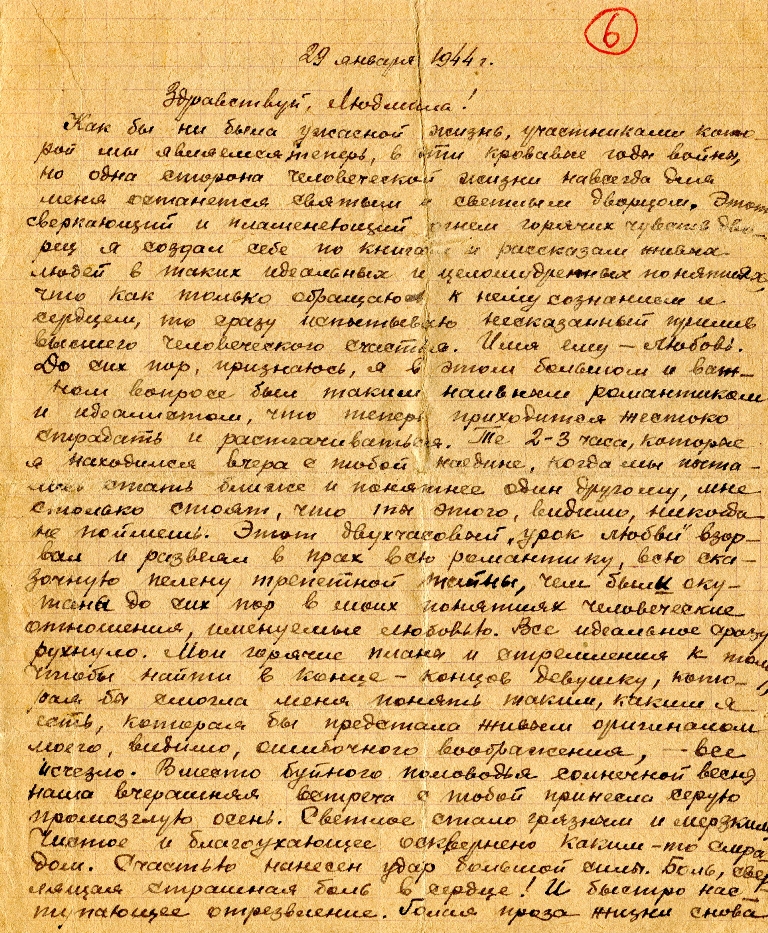 6
29 января 1944 г.
Здравствуй, Людмила!
Как бы ни была ужасной жизнь, участниками кото-
рой мы являемся теперь, в эти кровавые годы войны,
но одна сторона человеческой жизни навсегда для
меня останется святым и светлым дворцом. Этот
сверкающий и пламенеющий огнем горячих чувств дво-
рец я создал себе по книгам и рассказам живых
людей в таких идеальных и целомудренных понятиях,
что как только обращаюсь к нему сознанием и
сердцем, то сразу испытываю несказанный прилив
высшего человеческого счастья. Имя ему – Любовь.
До сих пор, признаюсь, я в этом большом и важ-
ном вопросе был таким наивным романтиком
и идеалистом, что теперь приходится жестоко
страдать и расплачиваться. Те 2-3 часа, которые
я находился вчера с тобой наедине, когда мы пыта-
лись стать ближе и понятнее один другому, мне
столько стоят, что ты этого, видимо, никогда
не поймешь. Этот двухчасовый „урок любви" взор-
вал и развеял в прах всю романтику, всю ска-
зочную пелену трепетной тайны, чем были оку-
таны до сих пор в моих понятиях человеческие
отношения, именуемые любовью. Все идеальное сразу
рухнуло. Мои горячие планы и стремления к тому,
чтобы найти в конце-концов девушку, кото-
рая бы смогла меня понять таким, каким я
есть, которая бы предстала живым оригиналом
моего, видимо, ошибочного воображения, – все
исчезло. Вместо буйного половодья солнечной весны
наша вчерашняя встреча с тобой принесла серую
промозглую осень. Светлое стало грязным и мерзким.
Чистое и благоухающее осквернено каким-то смра-
дом. Счастью нанесен удар большой силы. Боль, щемящая
страшная боль в сердце! И быстро нас-
тупающее отрезвление. Голая проза жизни снова